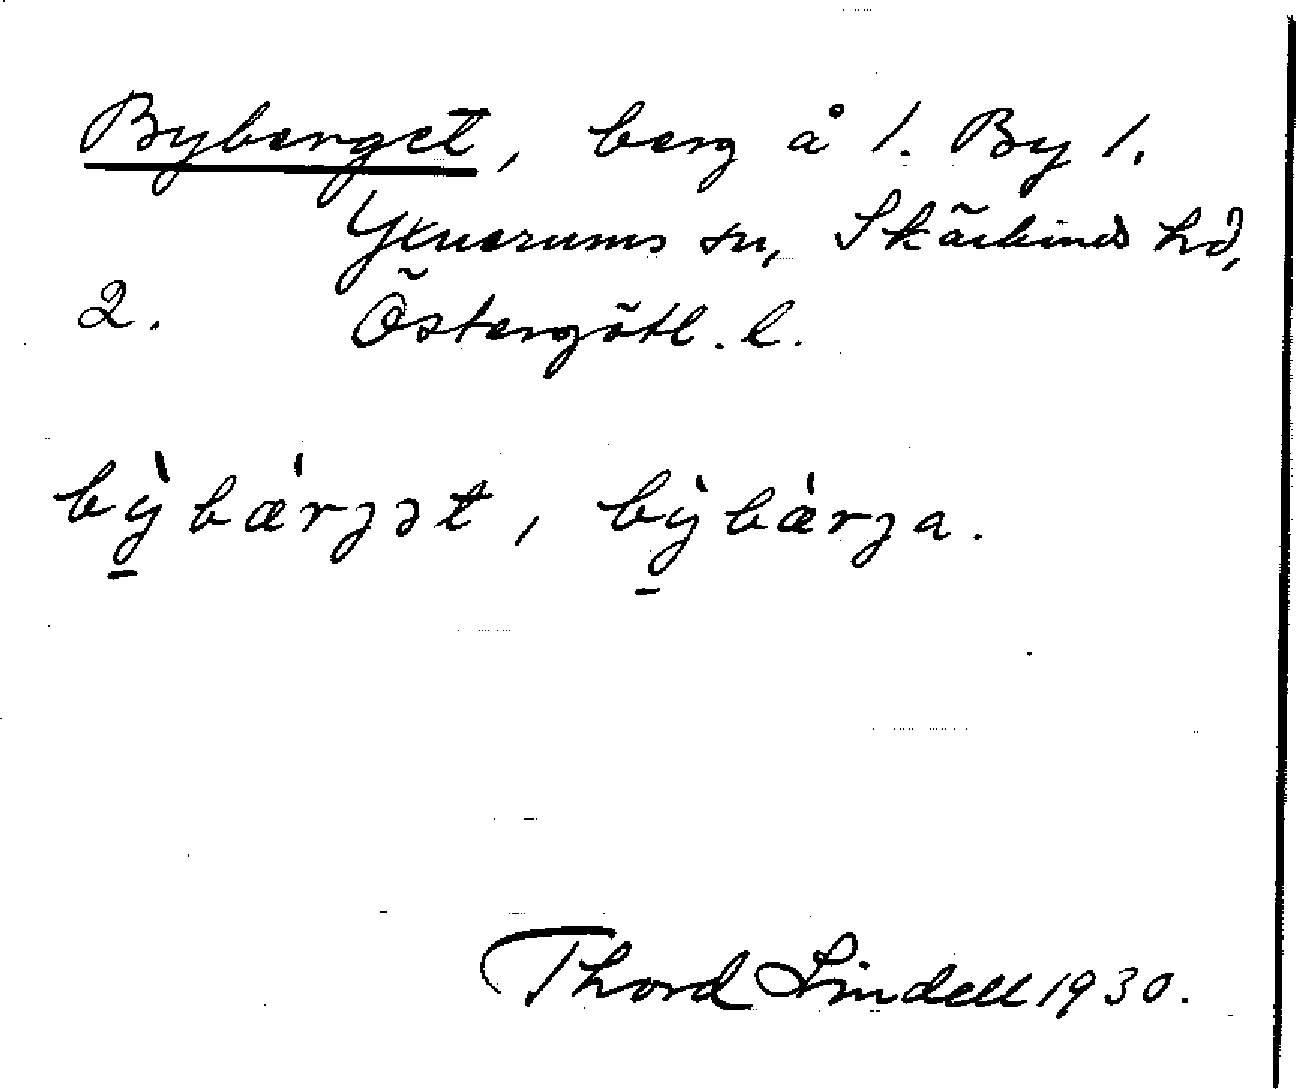 Byberget, berg å 1. By 1.
Yxnerums sn, Skärkinds hd,
2. Östergötl. l.
bỳ̠bǽrȷət, bỳ̠bǽrȷa.
Thord Lindell 1930.